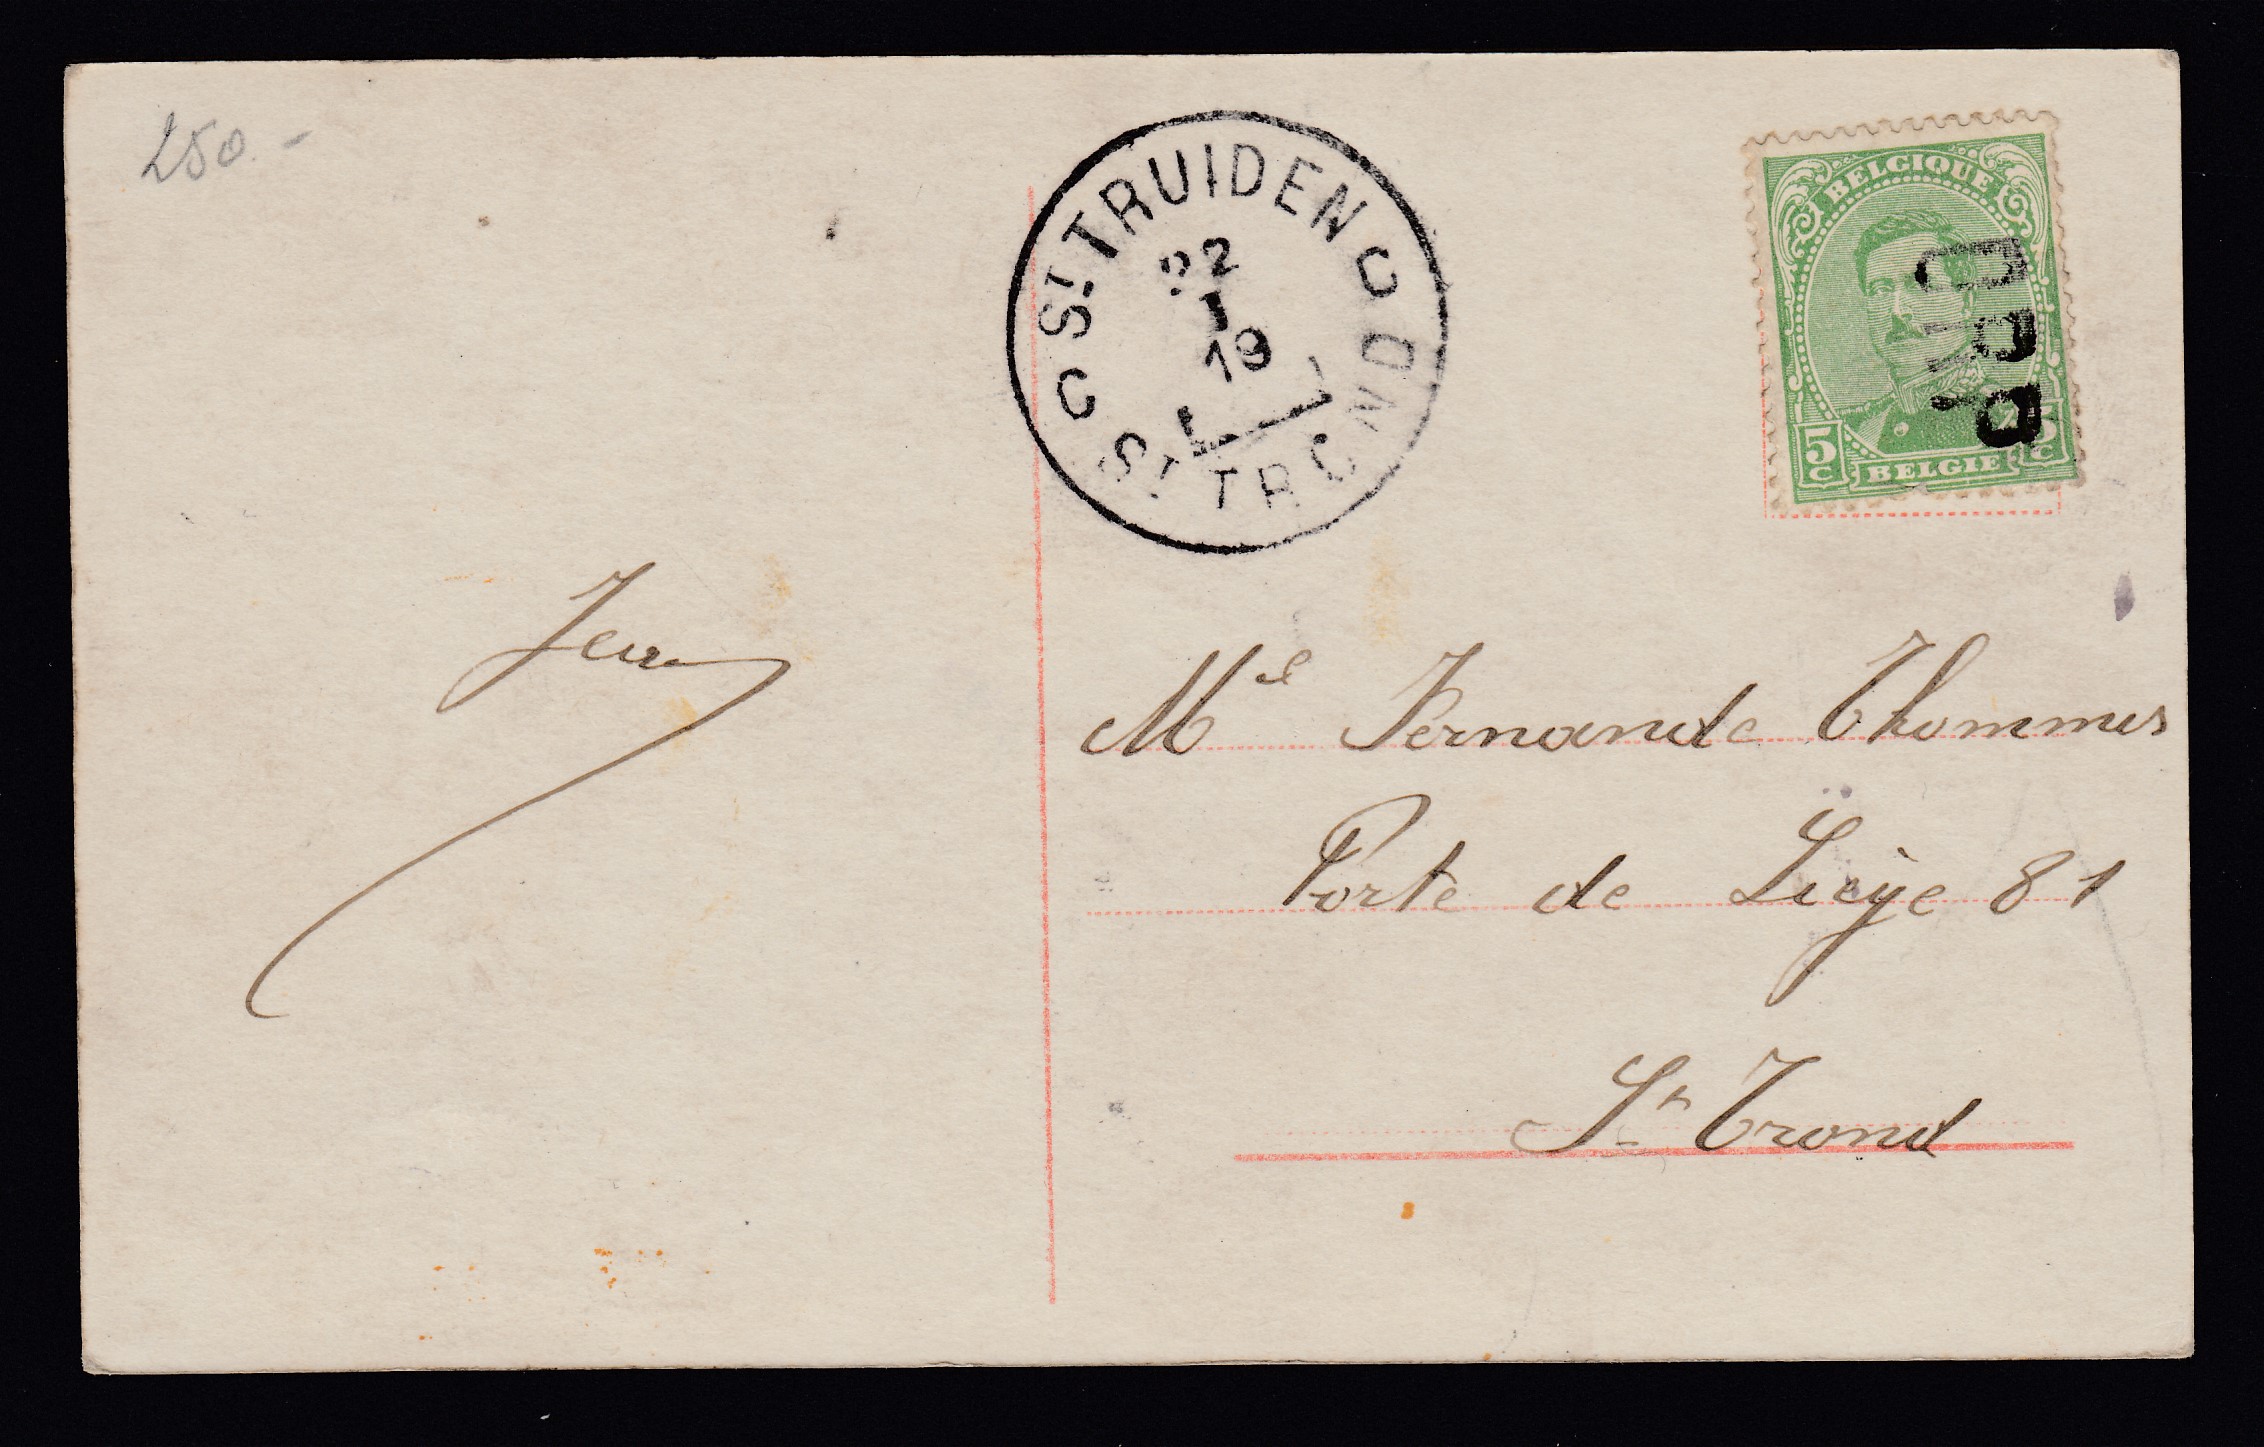 250.-
ST TRUIDEN
22
I
19
ST TROND
BELGIQUE
5 C
5 C
BELGIE
Jean
Mel Fernande Thommes
Porte de Liège 81
St Trond